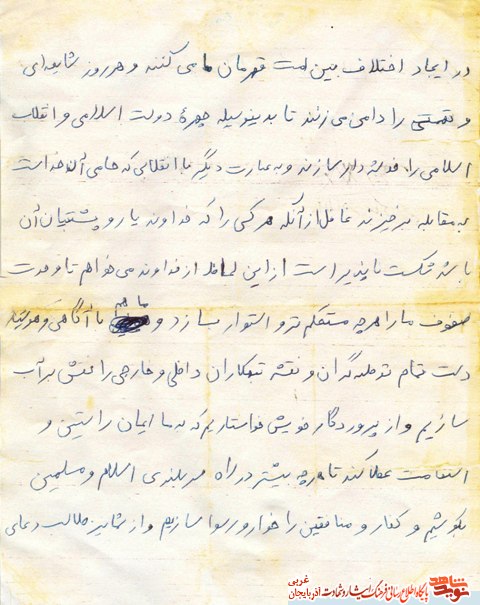 در ایجاد اختلاف بین امت قهرمان ما می کنند و هر روز شایعه ای
و تهمتی را دامن می زنند تا بدینوسیله چهره دولت اسلامی و انقلاب
اسلامی را خدشه دار سازند و به عبارت دیگر با انقلابی که حامی آن خداست
به مقابله برخیزند غافل از آنکه هر کس را که خداوند یار و پشتیبان آن
باشد شکست ناپذیر است از این لحاظ از خداوند می خواهم تا وحدت
صفوف ما را هر چه مستحکم تر و استوار سازد و ما همه با آگاهی و هوشیاری
دست تمام توطئه گران و نقشه تبهکاران داخلی و خارجی را نقش بر آب
سازیم و از پروردگار خویش خواستاریم که به ما ایمان راستین و
استقامت عطا کند تا هر چه بیشتر در راه سربلندی اسلام و مسلمین
بکوشیم و کفار و منافقین را خوار و رسوا سازیم و از شما نیز طالب دعای
نوید شاهد
پایگاه اطلاع رسانی فرهنگ ایثار و شهادت آذربایجان غربی